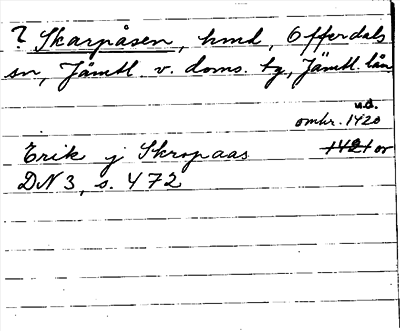 ? Skarpåsen, hmd, Offerdals
sn, Jämtl. v. doms. tg, Jämtl. län
u.å.
omkr. 1420
Erik j Skropaas 1421 or
DN 3, s. 472